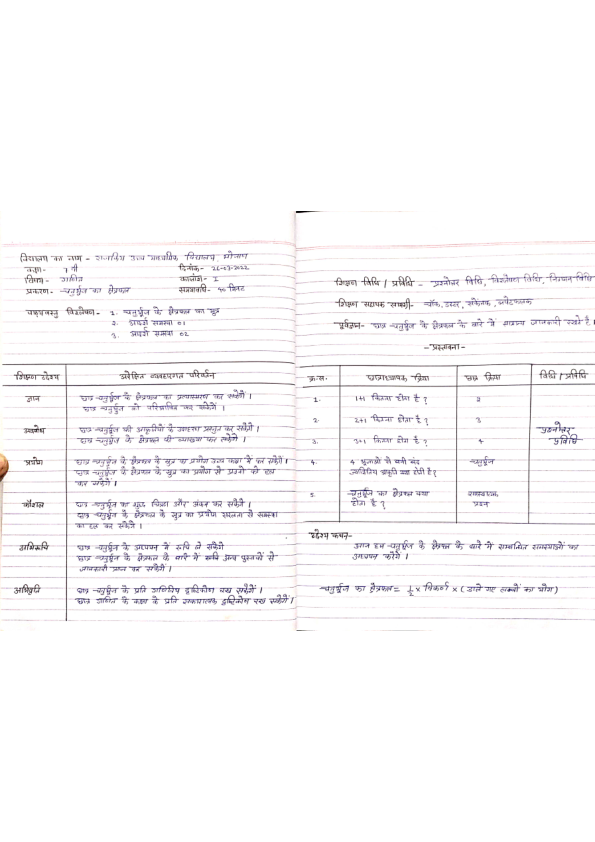 विद्यालय का नाम - शासकीय उच्च माध्यमिक विद्यालय, भोपाल
कक्षा- 7 वी दिनांक- 26-07-2022
विषय- गणित कालांश- I
प्रकरण- चतुर्भुज का क्षेत्रफल समयावधि- 40 मिनट
पाठ्यवस्तु विश्लेषण- 1. चतुर्भुज के क्षेत्रफल का सूत्र
2. आदर्श समस्या 01
3. आदर्श समस्या 02
शिक्षण उद्देश्य अपेक्षित व्यवहारगत परिवर्तन
ज्ञान छात्र चतुर्भुज के क्षेत्रफल का प्रत्यास्मरण कर सकेंगे।
छात्र चतुर्भुज को परिभाषित कर सकेंगे।
अवबोध छात्र चतुर्भुज की आकृतियों के उदाहरण प्रस्तुत कर सकेंगे।
छात्र चतुर्भुज के क्षेत्रफल की व्याख्या कर सकेंगे।
प्रयोग छात्र चतुर्भुज के क्षेत्रफल के सूत्र का प्रयोग उच्च कक्षा में कर सकेंगे।
छात्र चतुर्भुज के क्षेत्रफल के सूत्र का प्रयोग से प्रश्नों को हल
कर सकेंगे।
कौशल छात्र चतुर्भुज का शुद्ध चित्रण और अंकन कर सकेंगे।
छात्र चतुर्भुज के क्षेत्रफल के सूत्र का प्रयोग सरलता से समस्या
का हल कर सकेंगे।
अभिरूचि छात्र चतुर्भुज के अध्ययन में रूचि ले सकेंगे
छात्र चतुर्भुज के क्षेत्रफल के बारे में रूचि अन्य पुस्तकों से
जानकारी प्राप्त कर सकेंगे।
अभिवृत्ति छात्र चतुर्भुज के प्रति गणितीय दृष्टिकोण रख सकेंगे।
छात्र गणित के कक्षा के प्रति सकारात्मक दृष्टिकोण रख सकेंगे।
शिक्षण विधि / प्रविधि - प्रश्नोत्तर विधि, विश्लेषण विधि, निगमन विधि
शिक्षण सहायक सामग्री- चॉक, डस्टर, संकेतक, लपेटफलक
पूर्वज्ञान- छात्र चतुर्भुज के क्षेत्रफल के बारे में सामान्य जानकारी रखते है।
-प्रस्तावना-
क्र.स. छात्राध्यापक क्रिया छात्र क्रिया विधि / प्रविधि
1. 1+1 कितना होता है? 2
2. 2+1 कितना होता है? 3
प्रश्नोत्तर-
प्रविधि
3. 3+1 कितना होता है? 4
4. 4 भुजाओं से बनी बंद चतुर्भुज
ज्यामितीय आकृति क्या होती है?
5. चतुर्भुज का क्षेत्रफल क्या समस्यात्मक
होता है? प्रश्न
उद्देश्य कथन-
आज हम चतुर्भुज के क्षेत्रफल के बारे में सम्बन्धित समस्याओं का
अध्ययन करेंगे।
चतुर्भुज का क्षेत्रफल = 1/2 × विकर्ण × (डाले गए लम्बों का योग)